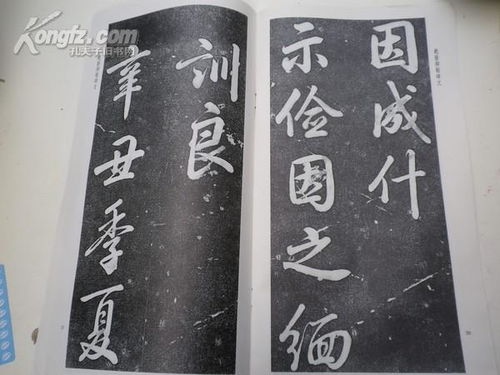 因成什
示俭因之缅
训良
辛丑季夏
Kongfz.com
孔夫子旧书网